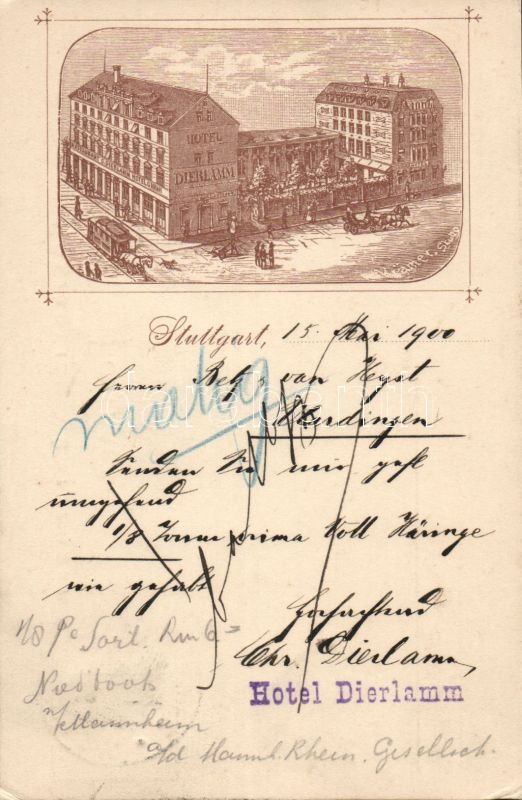 HOTEL
DIERLAMM
Stuttgart, 15. Mai 1900
Herrn van Heyst
Senden Sie mir gefl
umgehend
1/8 Tonne prima Voll Häringe
wie gehabt
Hochachtend
Chr. Dierlamm
Hotel Dierlamm
1/8 Pc Sort. Rm 6=
Mannheim
a/d Mannh. Rhein. Gesellsch.